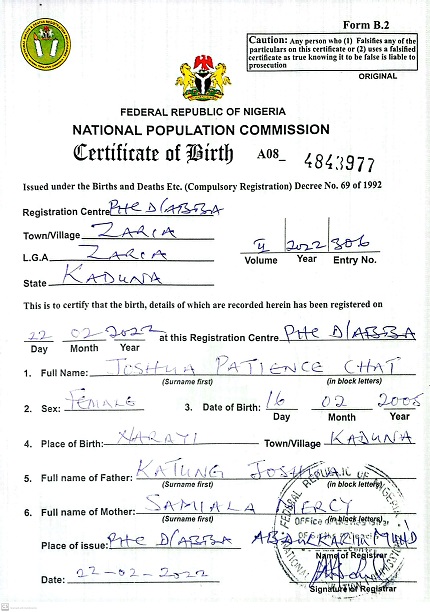 Form B.2
Caution: Any person who (1) Falsifies any of the
particulars on this certificate or (2) uses a falsified
certificate as true knowing it to be false is liable to
prosecution
ORIGINAL
FEDERAL REPUBLIC OF NIGERIA
NATIONAL POPULATION COMMISSION
Certificate of Birth A08_ 4843977
Issued under the Births and Deaths Etc. (Compulsory Registration) Decree No. 69 of 1992
Registration Centre PHC D/ABBA
Town/Village ZARIA
L.G.A ZARIA
State KADUNA
II 2022 306
Volume Year Entry No.
This is to certify that the birth, details of which are recorded herein has been registered on
22 02 2022 at this Registration Centre PHC D/ABBA
Day Month Year
1. Full Name: JOSHUA PATIENCE CHAT
(Surname first) (in block letters)
2. Sex: FEMALE 3. Date of Birth: 16 02 2005
Day Month Year
4. Place of Birth: NARAYI Town/Village KADUNA
5. Full name of Father: KATUNG JOSHUA
(Surname first) (in block letters)
6. Full name of Mother: SAMIALA MERCY
(Surname first) (in block letters)
Place of issue: PHC D/ABBA ABDULKARIM MUHD
Name of Registrar
Date: 22-02-2022
Signature of Registrar
FEDERAL REPUBLIC OF NIGERIA
NATIONAL POPULATION COMMISSION